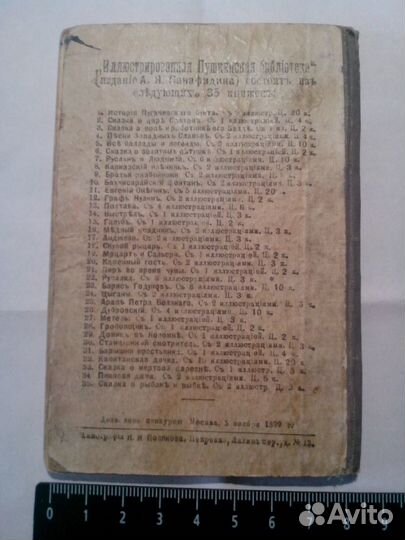 „Иллюстрированная Пушкинская библіотека“
(изданіе А. Я. Панафидина) состоитъ изъ
слѣдующихъ 35 книжекъ:
1. Исторія Пугачевскаго бунта. Съ иллюстр. Ц. 20 к.
2. Сказка о царѣ Салтанѣ. Съ 1 иллюстраціей. Ц. 4 к.
3. Сказка о попѣ и работникѣ его Балдѣ. Съ 1 ил. Ц. 2 к.
4. Пѣсни Западныхъ Славянъ. Съ 2 иллюстраціями. Ц. 4 к.
5. Всѣ баллады и легенды. Съ иллюстраціями. Ц. к.
6. Сказка о золотомъ пѣтушкѣ. Съ 1 иллюстраціей. Ц. 2 к.
7. Русланъ и Людмила. Съ 6 иллюстраціями. Ц. 10 к.
8. Кавказскій плѣнникъ. Съ 2 иллюстраціями. Ц. 3 к.
9. Братья разбойники. Съ 2 иллюстраціями. Ц. к.
10. Бахчисарайскій фонтанъ. Съ 2 иллюстраціями. Ц. 3 к.
11. Евгеній Онѣгинъ. Съ 5 иллюстраціями. Ц. 20 к.
12. Графъ Нулинъ. Съ 2 иллюстраціями. Ц. 2 к.
13. Полтава. Съ иллюстраціями. Ц. 6 к.
14. Выстрѣлъ. Съ 1 иллюстраціей. Ц. 3 к.
15. Галубъ. Съ 1 иллюстраціей. Ц. 2 к.
16. Мѣдный всадникъ. Съ 2 иллюстраціями. Ц. 3 к.
17. Анджело. Съ 2 иллюстраціями. Ц. 3 к.
18. Скупой рыцарь. Съ 1 иллюстраціей. Ц. 2 к.
19. Моцартъ и Сальери. Съ 1 иллюстраціей. Ц. 2 к.
20. Каменный гость. Съ 2 иллюстраціями. Ц. 3 к.
21. Пиръ во время чумы. Съ 1 иллюстраціей. Ц. 2 к.
22. Русалка. Съ иллюстраціями. Ц. 3 к.
23. Борисъ Годуновъ. Съ 8 иллюстраціями. Ц. 10 к.
24. Цыганы. Съ 2 иллюстраціями. Ц. 3 к.
25. Арапъ Петра Великаго. Съ 2 иллюстраціями. Ц. 5 к.
26. Дубровскій. Съ 4 иллюстраціями. Ц. 10 к.
27. Метель. Съ 1 иллюстраціей. Ц. 3 к.
28. Гробовщикъ. Съ 1 иллюстраціей. Ц. 2 к.
29. Домикъ въ Коломнѣ. Съ 1 иллюстраціей. Ц. 2 к.
30. Станціонный смотритель. Съ 2 иллюстраціями. Ц. 3 к.
31. Барышня-крестьянка. Съ 1 иллюстраціей. Ц. 4 к.
32. Капитанская дочка. Съ 10 иллюстраціями. Ц. 20 к.
33. Сказка о мертвой царевнѣ. Съ 1 иллюстр. Ц. 3 к.
34. Пиковая дама. Съ 2 иллюстраціями. Ц. 5 к.
35. Сказка о рыбакѣ и рыбкѣ. Съ 2 иллюстр. Ц. 3 к.
Дозволено цензурою. Москва, 5 ноября 1899 г.
Типографія И. Я. Полякова, Петровка, д. № 15.
0 1 2 3 4 5 6 7 8 9
Avito